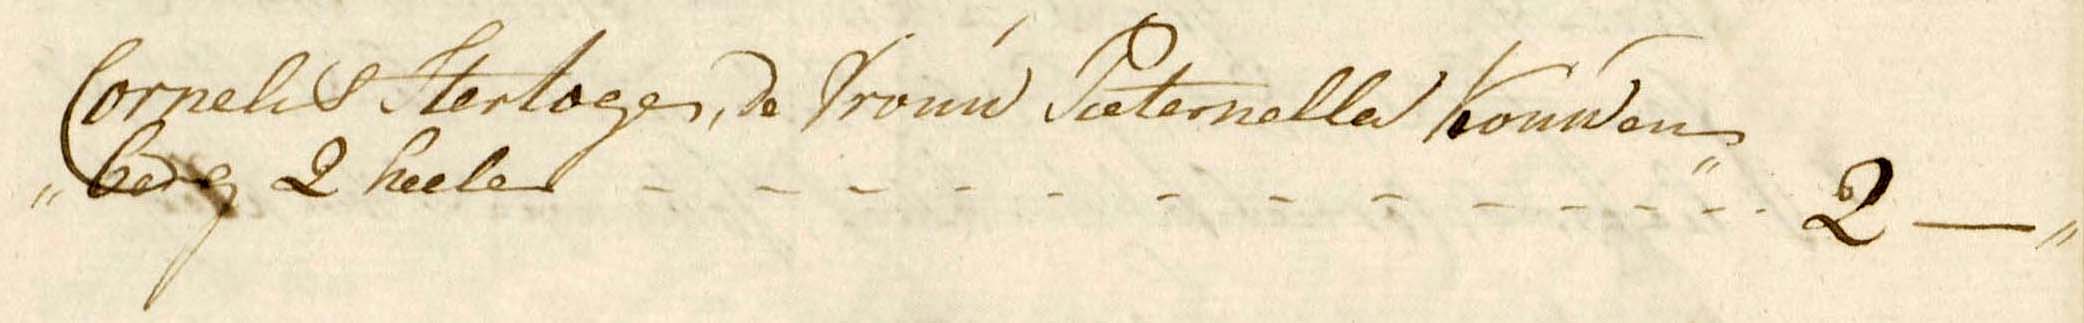 Cornelis Hertoges, de Vrouw Pieternella Kouwen„
„berg 2 heele - - - - - - - - - - - - 2 — „